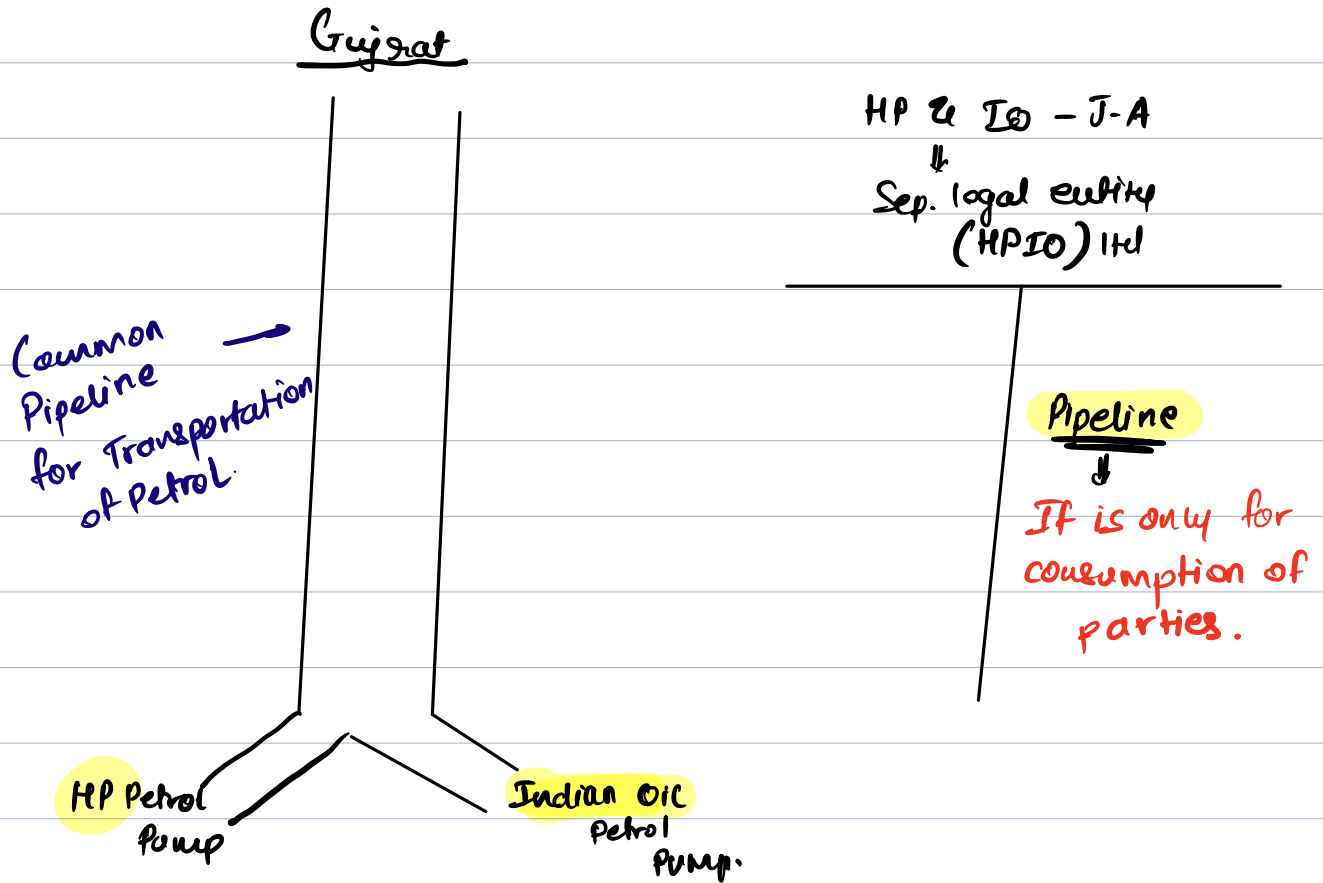 Gujrat
Common
Pipeline
for Transportation
of Petrol.
HP Petrol
Pump
Indian Oil
Petrol
Pump.
HP & IO - J-A
⇓
Sep. legal entity
(HPIO) ltd
Pipeline
⇓
If is only for
consumption of
parties.